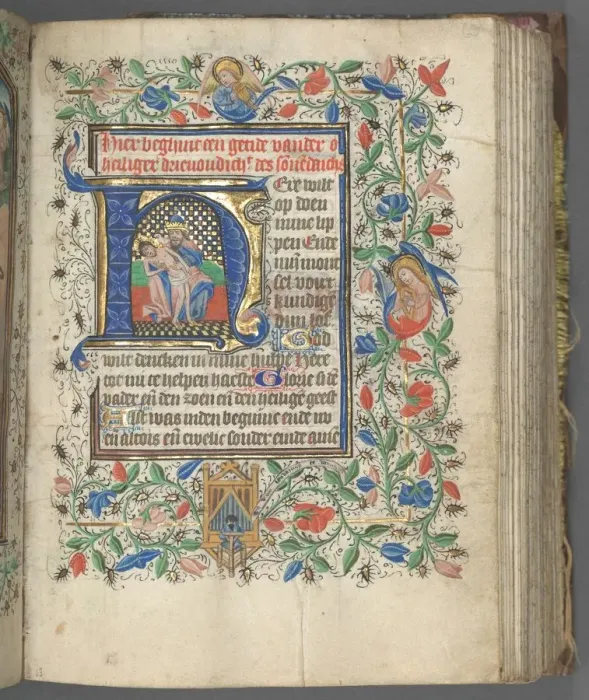 Hier beghint een getide vander o
heiligher drievoudich^t des sonēdachs
Here wilt
op doen
mine lip
pen Ende
mijn mont
sel vour
kundighē
dijn lof
God
wilt dencken in mine hulpe Here
tot mi te helpen haeste Glorie si dē
vader eñ den zoen eñ den heilige geest
Alst was inden beginne ende nv
eñ altois eñ ewelic sonder einde amē